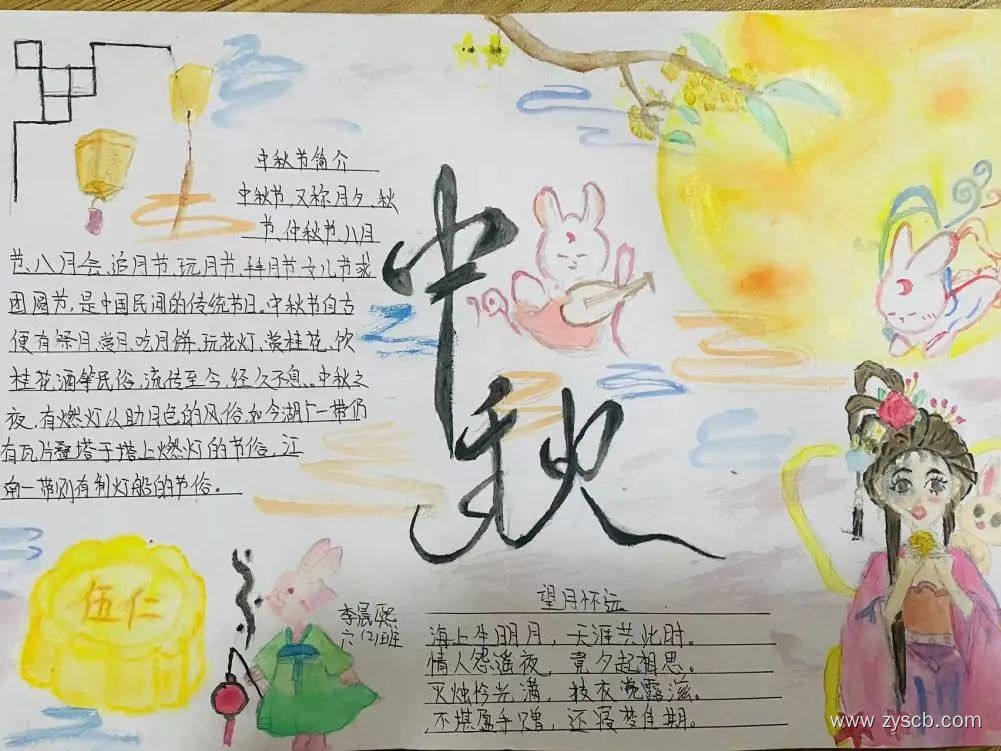 中秋节简介
中秋节,又称月夕、秋
节、仲秋节、八月
节、八月会、追月节、玩月节、拜月节、女儿节或
团圆节,是中国民间的传统节日。中秋节自古
便有祭月、赏月、吃月饼、玩花灯、赏桂花、饮
桂花酒等民俗,流传至今,经久不息。中秋之
夜,有燃灯以助月色的风俗,如今湖广一带仍
有瓦片叠塔于塔上燃灯的节俗,江
南一带则有制灯船的节俗。
中秋
伍仁
李晨熙
六(2)班
望月怀远
海上生明月,天涯共此时。
情人怨遥夜,竟夕起相思。
灭烛怜光满,披衣觉露滋。
不堪盈手赠,还寝梦佳期。
www.zyscb.com